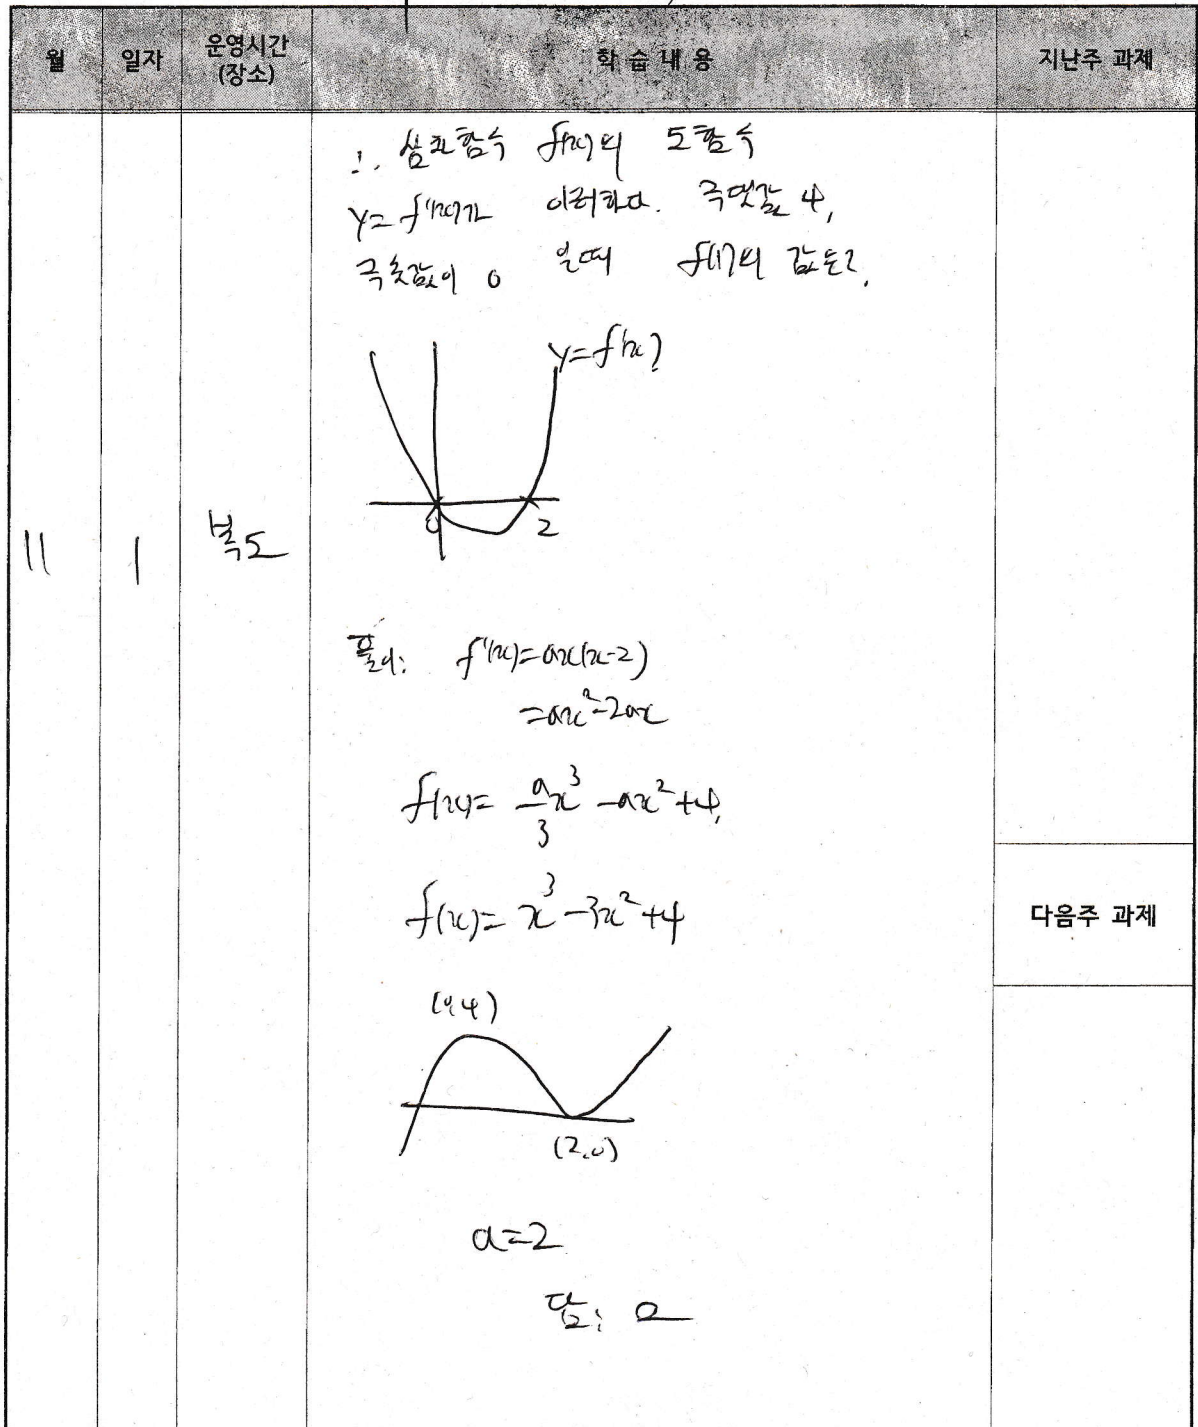 월 일자 운영시간 (장소) 학 습 내 용 지난주 과제
1. 삼차함수 f(x)의 도함수
y=f'(x)가 이러하다. 극댓값 4,
극솟값이 0 일때 f(1)의 값은?
y=f'(x)
0 2
11 1 복도
풀이: f'(x)=ax(x-2)
=ax²-2ax
f(x)= a/3 x³ -ax²+4
f(x)= x³-3x²+4
다음주 과제
(0,4)
(2,0)
a=2
답: 2